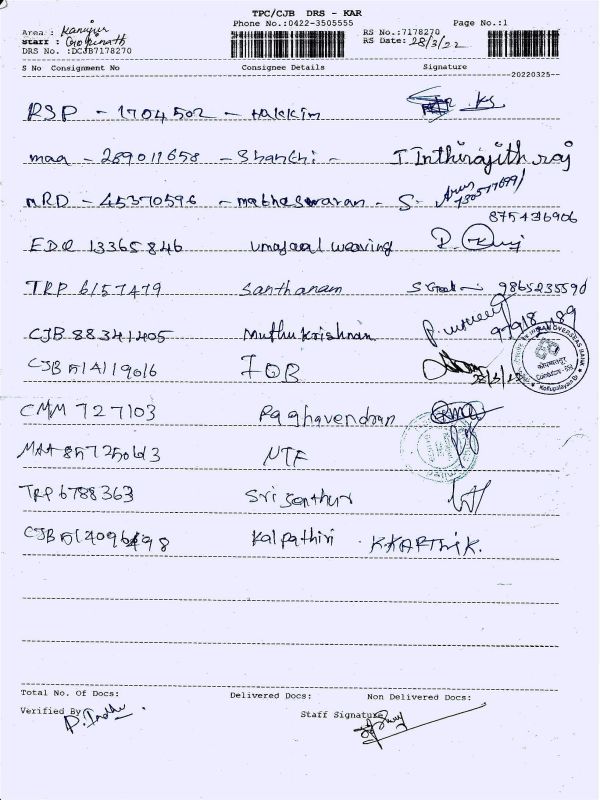 TPC/CJB DRS - KAR
Phone No.:0422-3505555 Page No.:1
Area : Kanuyur RS No.:7178270
Staff : Gopinath RS Date: 28/3/22
DRS No. :DCJB7178270
S No Consignment No Consignee Details Signature
20220325
RSP - 1704502 - Hakkim KS
maa - 289011658 - Shanthi - T. Inthirajith raj
MRD - 45370596 - maheswaran - S. Arun
875436906
EDQ 13365846 umayaal weaving
TRP 6157479 Santhanam 9865235590
CJB 88341405 Muthukrishnan
CJB 514119016 IOB 28/3/22
CMM 727103 Raghavendran
MAA 857250613 NTF
TRP 6788363 Sri Senthur
CJB 514096498 Kalpathiri K.KARTHIK.
Total No. Of Docs: Delivered Docs: Non Delivered Docs:
Verified By: P. Indhu Staff Signature